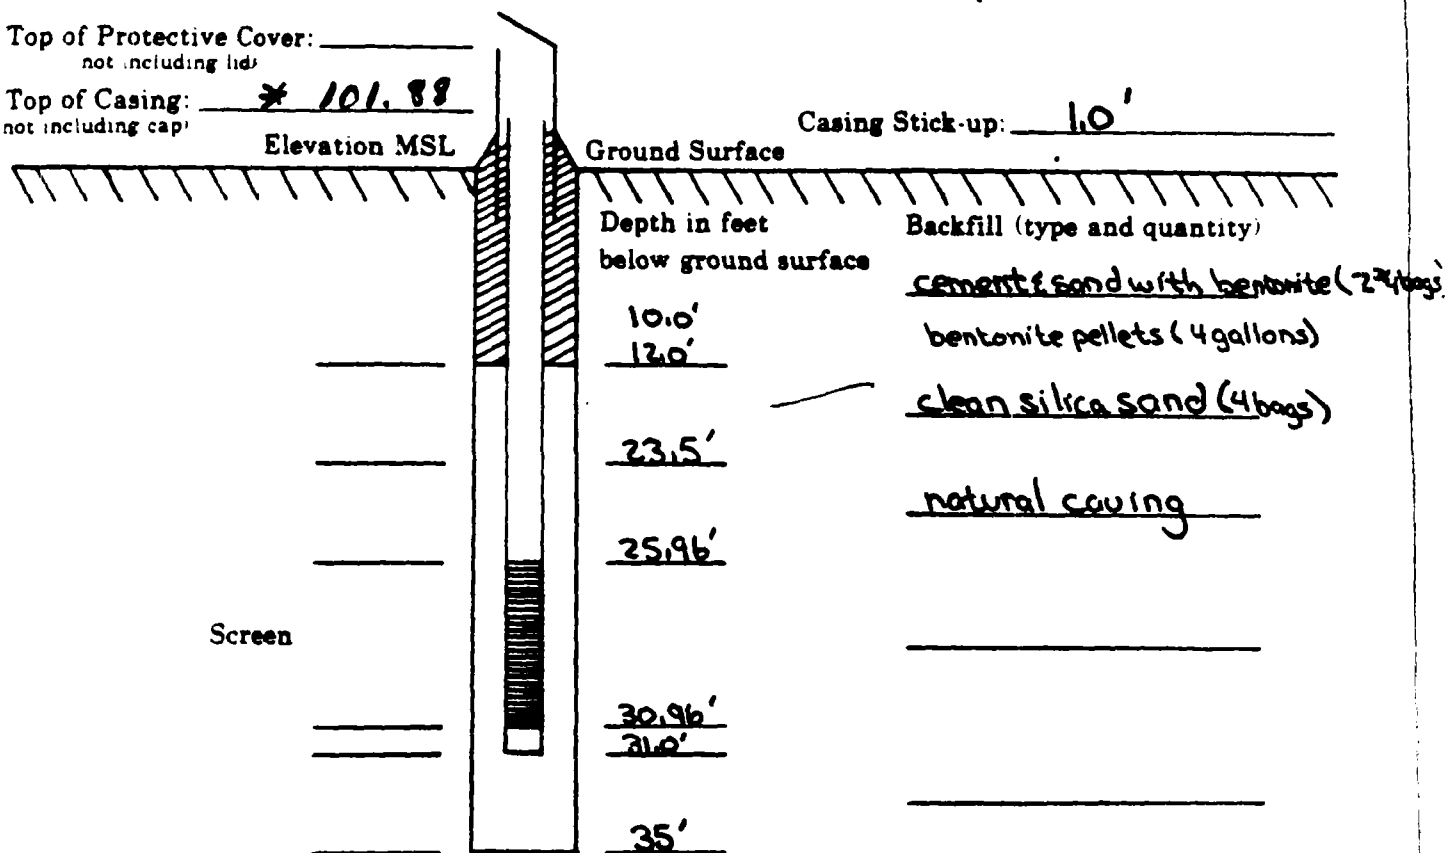 Top of Protective Cover:
not including lid)
Top of Casing: * 101.88
not including cap)
Elevation MSL
Ground Surface
Casing Stick-up: 1.0'
Depth in feet
below ground surface
Backfill (type and quantity)
cement & sand with bentonite ( bags)
10.0'
bentonite pellets (4 gallons)
12.0'
clean silica sand (4 bags)
23.5'
natural caving
25.96'
Screen
30.96'
31.0'
35'